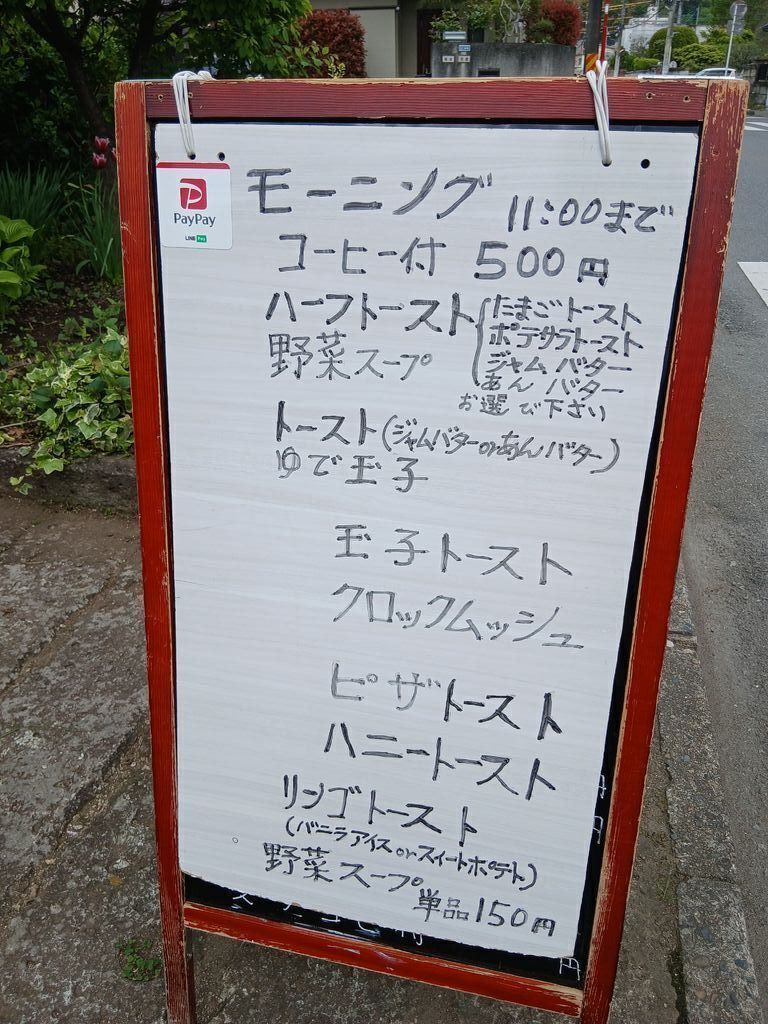 PayPay
LINE Pay
モーニング 11:00まで
コーヒー付 500円
ハーフトースト
野菜スープ
たまごトースト
ポテサラトースト
ジャムバター
あんバター
お選び下さい
トースト(ジャムバターorあんバター)
ゆで玉子
玉子トースト
クロックムッシュ
ピザトースト
ハニートースト
リンゴトースト
(バニラアイスorスイートポテト)
野菜スープ
単品150円
円